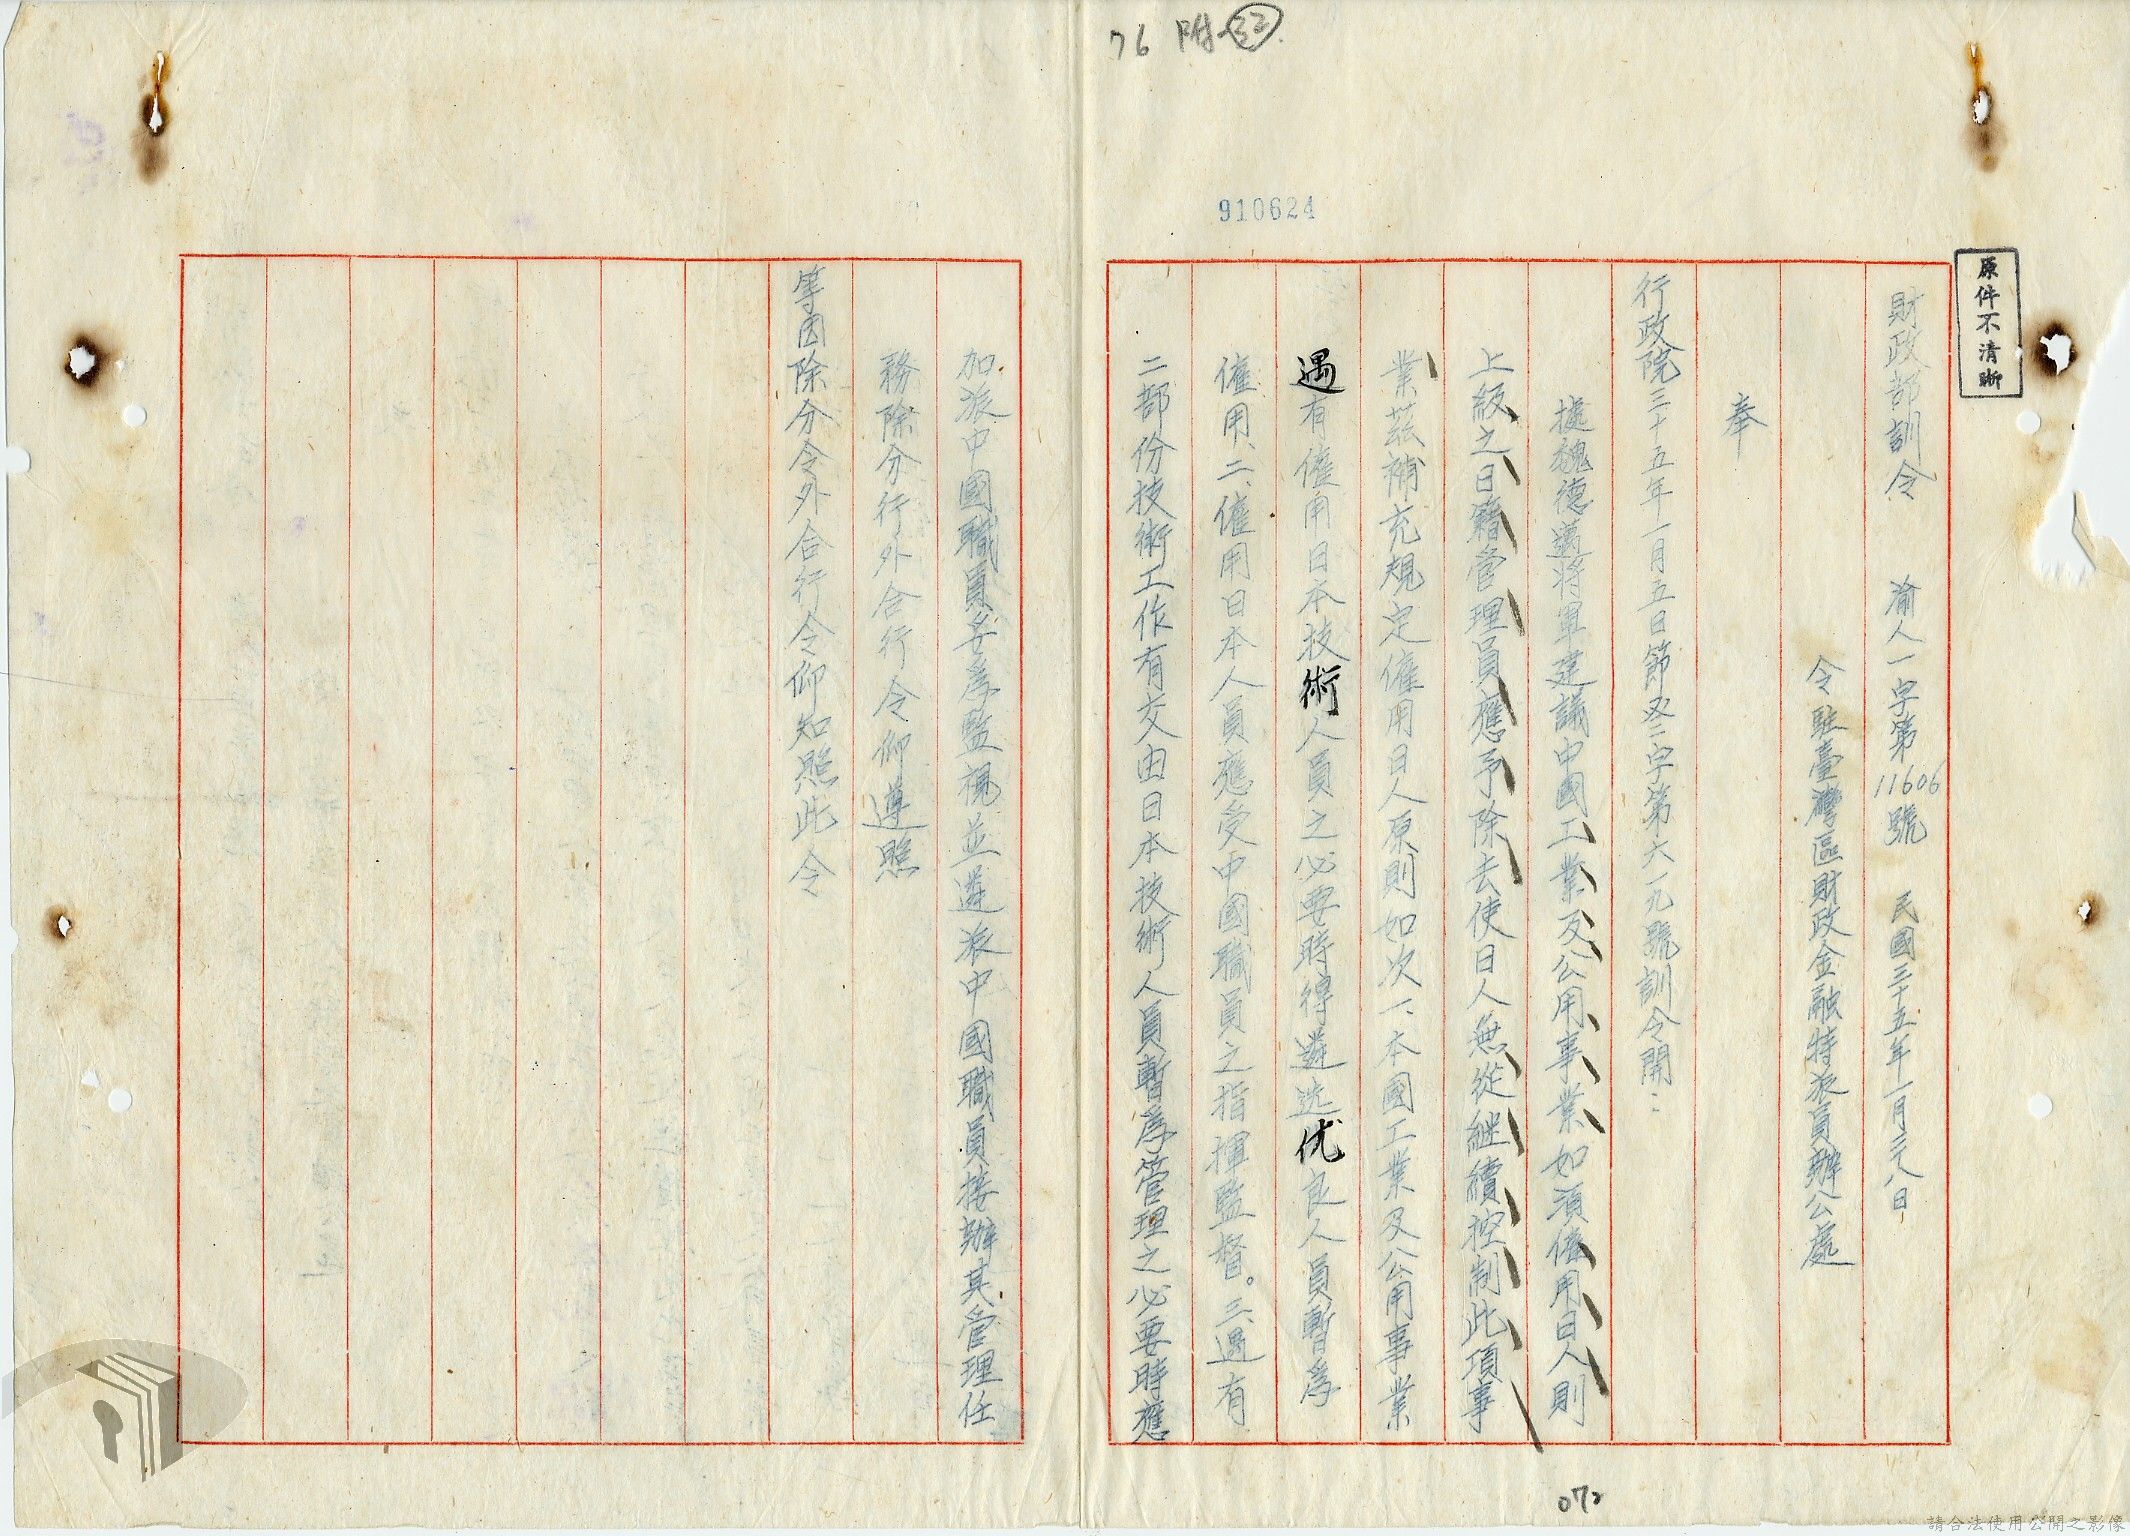 76 附 32
910624
原件不清晰
財政部訓令 渝人一字第11606號 民國三十五年一月二八日
令駐臺灣區財政金融特派員辦公處
奉
行政院三十五年一月五日節双二字第六一九號訓令開：
據魏德邁將軍建議中國工業及公用事業如須僱用日人則
上級之日籍管理員應予除去使日人無從繼續控制此項事
業茲補充規定僱用日人原則如次一、本國工業及公用事業
遇有僱用日本技術人員之必要時得遴选优良人員暫為
僱用、二、僱用日本人員應受中國職員之指揮監督。三、遇有
二部份技術工作有交由日本技術人員暫為管理之必要時應
加派中國職員妥為監視並遴派中國職員接辦其管理任
務除分行外合行令仰遵照
等因除分令外合行令仰知照此令
072
請合法使用公開之影像